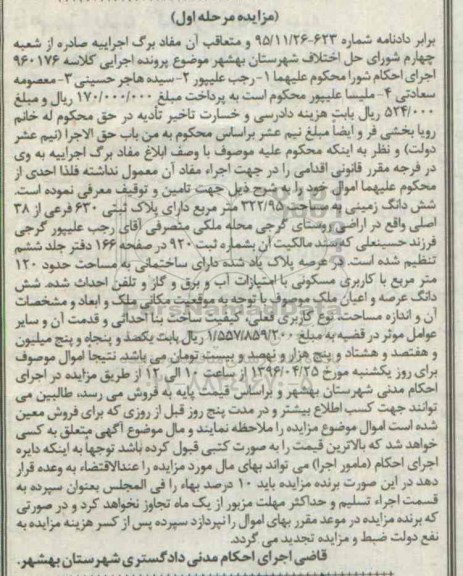 (مزایده مرحله اول)
برابر دادنامه شماره ۶۲۳-۹۵/۱۱/۲۶ و متعاقب آن مفاد برگ اجراییه صادره از شعبه
چهارم شورای حل اختلاف شهرستان بهشهر موضوع پرونده اجرایی کلاسه ۹۶۰۱۷۶
اجرای احکام شورا محکوم علیهما ۱-رجب علیپور ۲-سیده هاجر حسینی ۳-معصومه
سعادتی ۴-ملیسا علیپور محکوم است به پرداخت مبلغ ۱۷۰/۰۰۰/۰۰۰ ریال و مبلغ
۵۲۴/۰۰۰ ریال بابت هزینه دادرسی و خسارت تاخیر تادیه در حق محکوم له خانم
رویا بخشی فر و ایضا مبلغ نیم عشر براساس محکوم به من باب حق الاجرا (نیم عشر
دولت) و نظر به اینکه محکوم علیه موصوف با وصف ابلاغ مفاد برگ اجراییه به وی
در فرجه مقرر قانونی اقدامی را در جهت اجراء مفاد آن معمول نداشته فلذا احدی از
محکوم علیهما اموال خود را به شرح ذیل جهت تامین و توقیف معرفی نموده است.
شش دانگ زمینی به مساحت ۳۲۲/۹۵ متر مربع دارای پلاک ثبتی ۶۳۰ فرعی از ۳۸
اصلی واقع در اراضی روستای گرجی محله ملکی متصرفی آقای رجب علیپور گرجی
فرزند حسینعلی که سند مالکیت آن بشماره ثبت ۹۲۰ در صفحه ۱۶۶ دفتر جلد ششم
تنظیم شده است. در عرصه پلاک یاد شده دارای ساختمانی به مساحت حدود ۱۲۰
متر مربع با کاربری مسکونی با امتیازات آب و برق و گاز و تلفن احداث شده. شش
دانگ عرصه و اعیان ملک موصوف با توجه به موقعیت مکانی ملک و ابعاد و مشخصات
آن و اندازه مساحت، نوع کاربری فعلی، کیفیت ساخت بنا احداثی و قدمت آن و سایر
عوامل موثر در قضیه به مبلغ ۱/۵۵۷/۸۵۹/۲۰۰ ریال بابت یکصد و پنجاه و پنج میلیون
و هفتصد و هشتاد و پنج هزار و نهصد و بیست تومان می باشد. نتیجا اموال موصوف
برای روز یکشنبه مورخ ۱۳۹۶/۰۴/۲۵ از ساعت ۱۰ الی ۱۲ از طریق مزایده در اجرای
احکام مدنی شهرستان بهشهر و براساس قیمت پایه به فروش می رسد، طالبین می
توانند جهت کسب اطلاع بیشتر و در مدت پنج روز قبل از روزی که برای فروش معین
شده است اموال موضوع مزایده را ملاحظه نمایند و مال موضوع آگهی متعلق به کسی
خواهد شد که بالاترین قیمت را به صورت کتبی قبول کرده باشد توجها به اینکه دایره
اجرای احکام (مامور اجرا) می تواند بهای مال مورد مزایده را عندالاقتضاء به وعده قرار
دهد در این صورت برنده مزایده باید ۱۰ درصد بهاء را فی المجلس بعنوان سپرده به
قسمت اجراء تسلیم و حداکثر مهلت مزبور از یک ماه تجاوز نخواهد کرد و در صورتی
که برنده مزایده در موعد مقرر بهای اموال را نپردازد سپرده پس از کسر هزینه مزایده به
نفع دولت ضبط و مزایده تجدید می گردد.
قاضی اجرای احکام مدنی دادگستری شهرستان بهشهر.